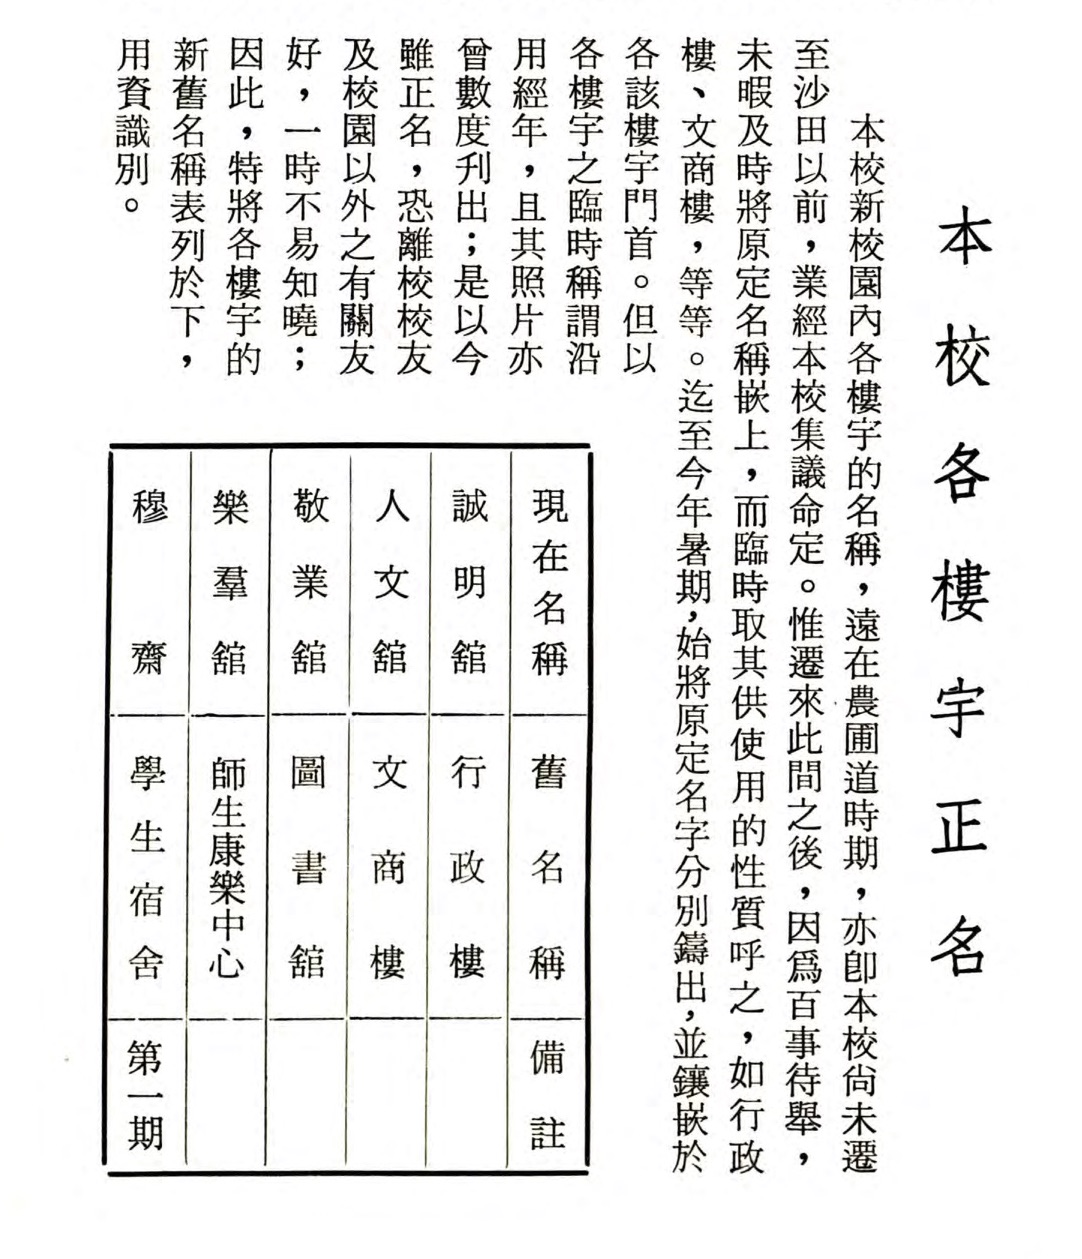 本校各樓宇正名
本校新校園內各樓宇的名稱，遠在農圃道時期，亦卽本校尙未遷
至沙田以前，業經本校集議命定。惟遷來此間之後，因爲百事待舉，
未暇及時將原定名稱嵌上，而臨時取其供使用的性質呼之，如行政
樓、文商樓，等等。迄至今年暑期，始將原定名字分別鑄出，並鑲嵌於
各該樓宇門首。但以
各樓宇之臨時稱謂沿
用經年，且其照片亦
曾數度刋出；是以今
雖正名，恐離校校友
及校園以外之有關友
好，一時不易知曉；
因此，特將各樓宇的
新舊名稱表列於下，
用資識別。
現在名稱 舊名稱 備註
誠明舘 行政樓
人文舘 文商樓
敬業舘 圖書舘
樂羣舘 師生康樂中心
穆齋 學生宿舍 第一期